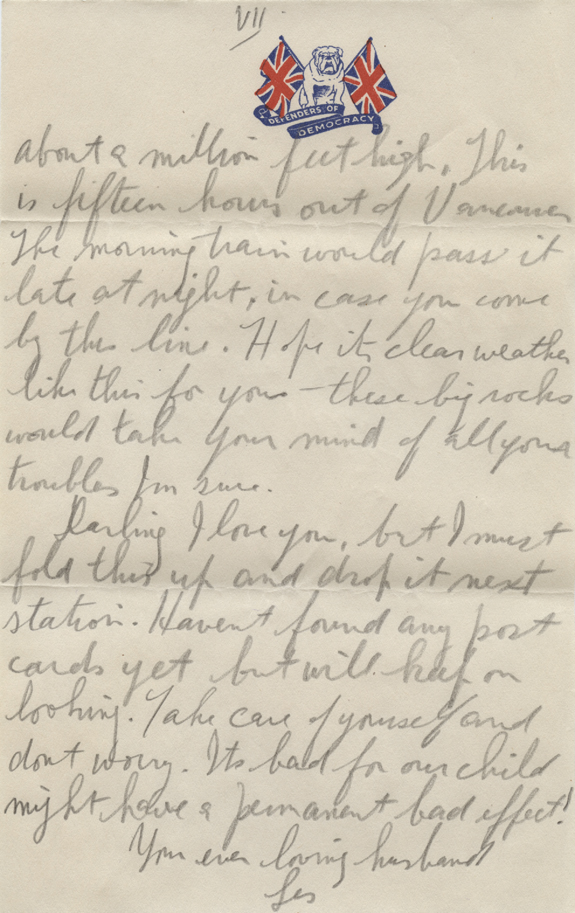 VII
DEFENDERS OF
DEMOCRACY
about a million feet high. This
is fifteen hours out of Vancouver
The morning train would pass it
late at night, in case you come
by this line. Hope its clear weather
like this for you – these big rocks
would take your mind of all your
troubles I'm sure.
Darling I love you, but I must
fold this up and drop it next
station. Havent found any post
cards yet but will keep on
looking. Take care of yourself and
dont worry. Its bad for our child
might have a permanent bad effect!
Your ever loving husband
Les